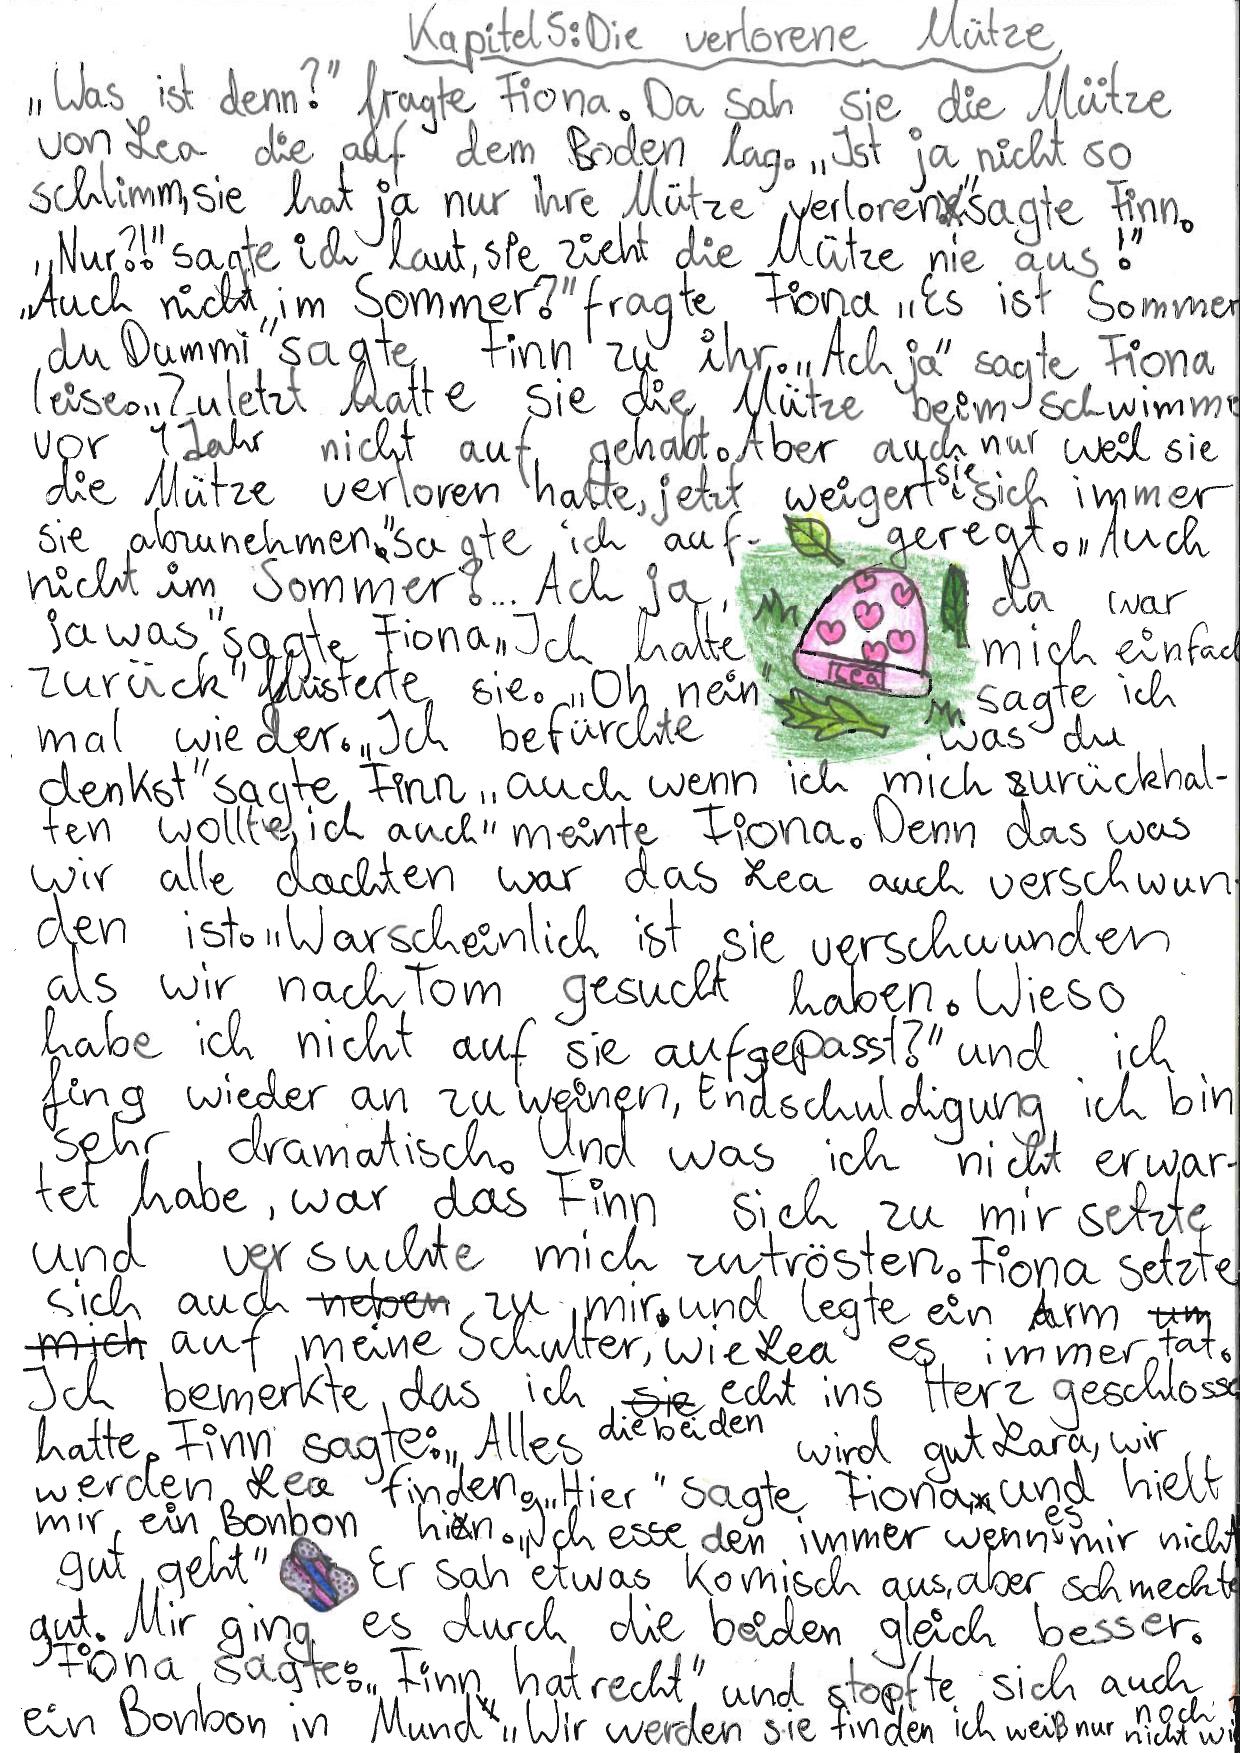 Kapitel 5: Die verlorene Mütze
„Was ist denn?" fragte Fiona. Da sah sie die Mütze
von Lea die auf dem Boden lag. „Ist ja nicht so
schlimm, sie hat ja nur ihre Mütze verloren" sagte Finn.
„Nur?!" sagte ich laut, sie zieht die Mütze nie aus!"
„Auch nicht im Sommer?" fragte Fiona „Es ist Sommer
du Dummi" sagte Finn zu ihr. „Ach ja" sagte Fiona
leise. „Zuletzt hatte sie die Mütze beim schwimm
vor 1 Jahr nicht auf gehabt. Aber auch nur weil sie
die Mütze verloren hatte, jetzt weigert sie sich immer
sie abzunehmen." sagte ich auf- geregt. „Auch
nicht im Sommer?... Ach ja, da war
ja was" sagte Fiona „Ich halte mich einfach
zurück" flüsterte sie. „Oh nein" sagte ich
mal wieder. „Ich befürchte was du
denkst" sagte Finn „auch wenn ich mich zurückhal-
ten wollte, ich auch" meinte Fiona. Denn das was
wir alle dachten war das Lea auch verschwun-
den ist. „Warscheinlich ist sie verschwunden
als wir nach Tom gesucht haben. Wieso
habe ich nicht auf sie aufgepasst?" und ich
fing wieder an zu weinen, Endschuldigung ich bin
sehr dramatisch. Und was ich nicht erwar-
tet habe, war das Finn sich zu mir setzte
und versuchte mich zutrösten. Fiona setzte
sich auch neben zu mir und legte ein Arm um
mich auf meine Schulter, wie Lea es immer tat.
Ich bemerkte das ich sie die beiden echt ins Herz geschlosse
hatte. Finn sagte: „Alles wird gut Lara, wir
werden Lea finden. „Hier" sagte Fiona und hielt
mir ein Bonbon hin. „Ich esse den immer wenn es mir nicht
gut geht" Er sah etwas Komisch aus, aber schmeckte
gut. Mir ging es durch die beiden gleich besser.
Fiona sagte: „Finn hat recht" und stopfte sich auch
ein Bonbon in Mund „Wir werden sie finden ich weiß nur noch nicht wi
Lea